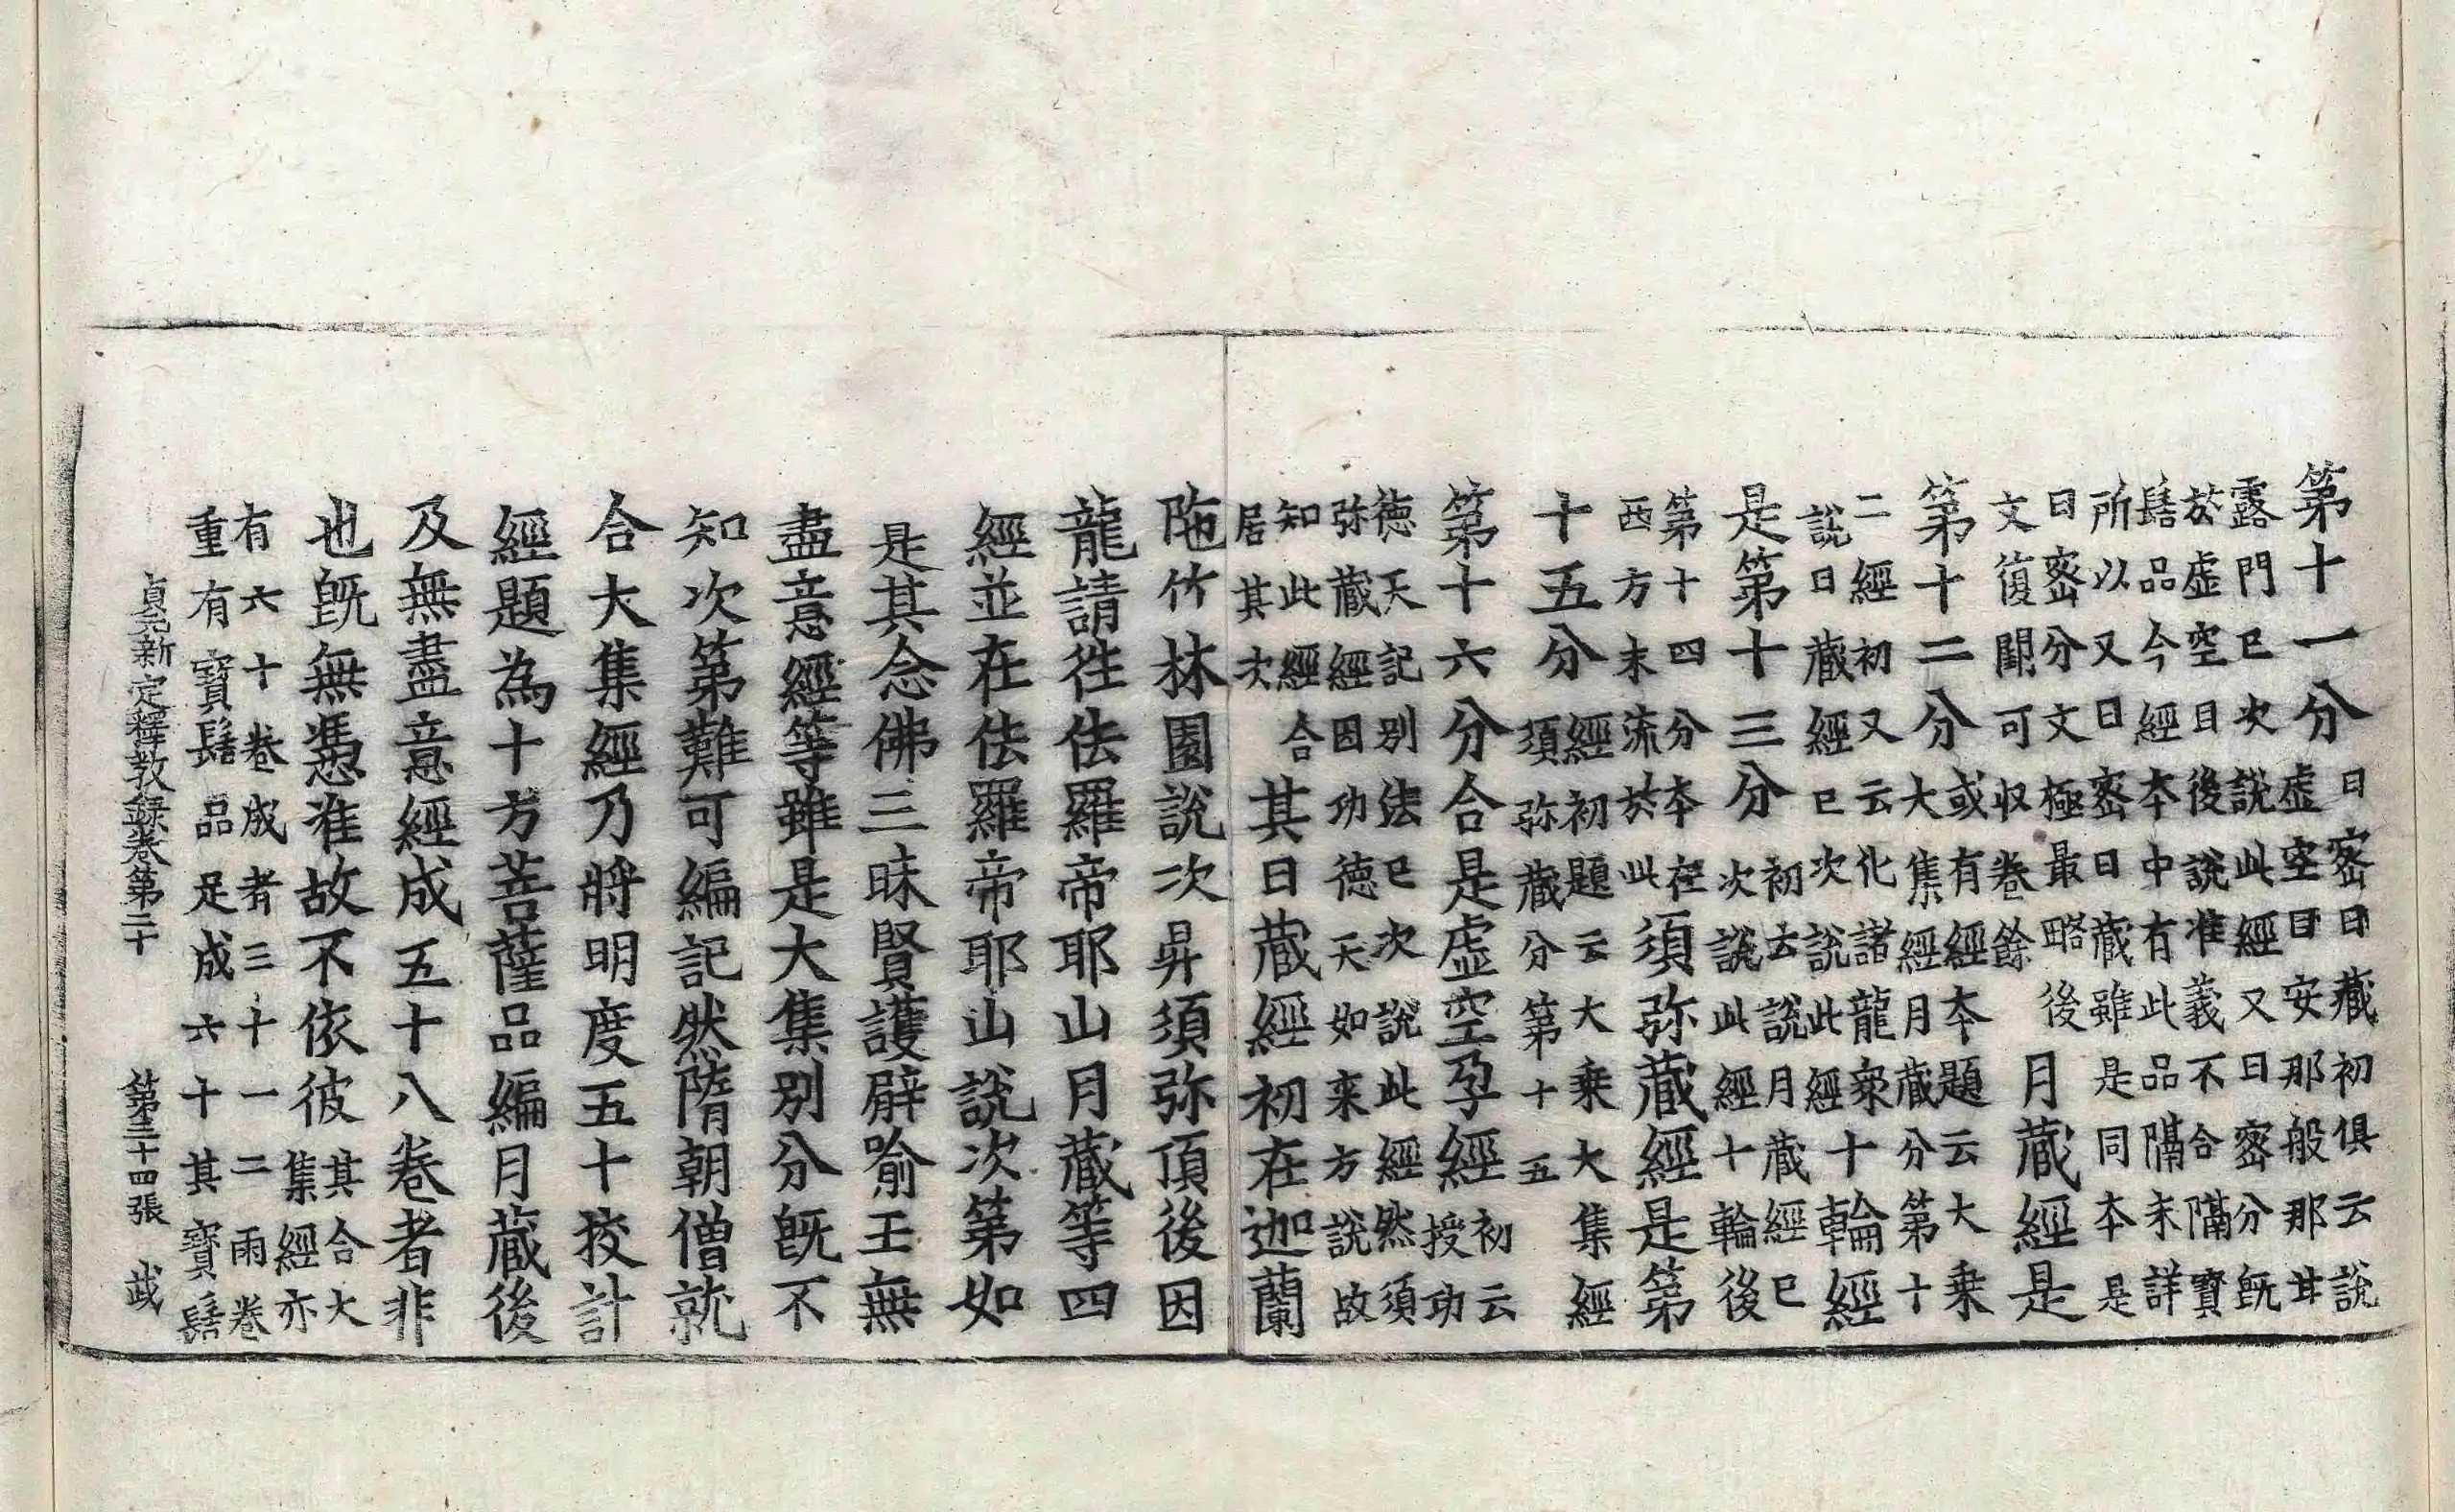 第十一分日密日藏初俱云說
虛空目安那般那𦬇
露門已次說此經又日密分旣
於虛空目後說准義不合隔寶
髻品今經本中有此品隔未詳
所以又日密日藏雖是同本是
日密分文極最略後
文復闕可収卷餘
月藏經是
第十二分或有經本題云大乗
大集經月藏分第十
二經初又云化諸龍衆
說日藏經已次說此經
十輪經
是第十三分初去說月藏經已
次說此經十輪後
第十四分本在
西方末流於此
須弥藏經是第
十五分經初題云大乗大集經
須弥藏分第十五
第十六分合是虛空孕經初云
授功
德天記別法已次說此經然須
弥藏經因功德天如来方說故
知此經合
居其次
其日藏經初在迦蘭
陁竹林園說次昇須弥頂後因
龍請徃佉羅帝耶山月藏等四
經並在佉羅帝耶山說次第如
是其念佛三昧賢護辟喻王無
盡意經等雖是大集別分旣不
知次第難可編記然隋朝僧就
合大集經乃將明度五十挍計
經題為十方菩薩品編月藏後
及無盡意經成五十八卷者非
也旣無憑准故不依彼其合大
集經亦
有六十卷成者三十一二兩卷
重有寶髻品足成六十其寶髻
貞元新定釋教錄卷第二十　第三十四張　茂